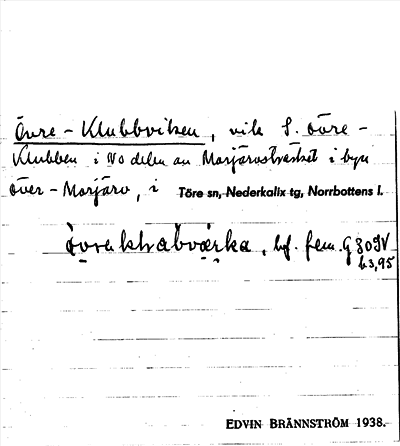 Övre - Klubbviken, vik S. övre -
Klubben i NO delen av Morjärvsträsket i byn
Över - Morjärv, i Töre sn, Nederkalix tg, Norrbottens l.
bf. fem. G 30 IV
k 3,95
EDVIN BRÄNNSTRÖM 1938.